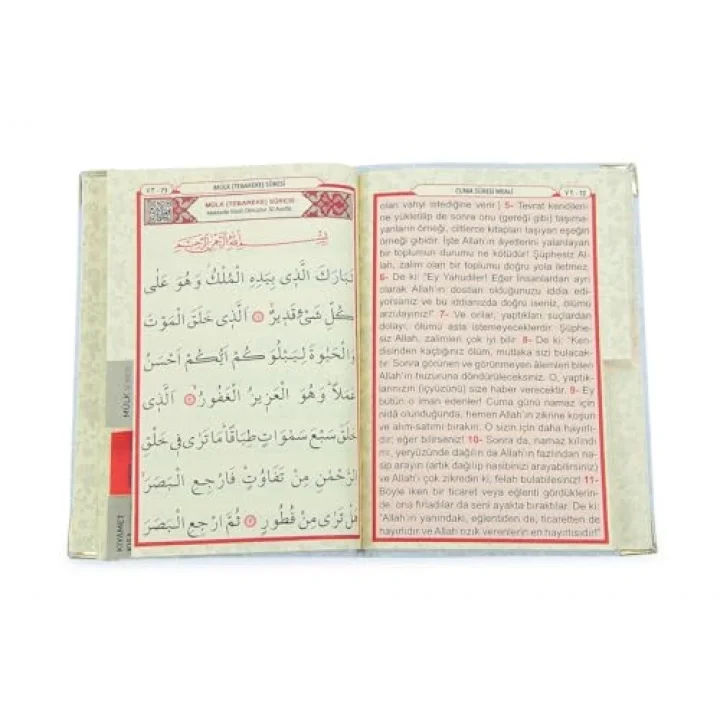 VT - 73
MÜLK (TEBAREKE) SÛRESİ
MÜLK (TEBAREKE) SÛRESİ
بِسْمِ اللّٰهِ الرَّحْمٰنِ الرَّحٖيمِ
تَبَارَكَ الَّذٖي بِيَدِهِ الْمُلْكُ وَهُوَ عَلٰى
كُلِّ شَيْءٍ قَدٖيرٌ ۞ اَلَّذٖي خَلَقَ الْمَوْتَ
وَالْحَيٰوةَ لِيَبْلُوَكُمْ اَيُّكُمْ اَحْسَنُ
عَمَلاً وَهُوَ الْعَزٖيزُ الْغَفُورُ ۞ اَلَّذٖي
خَلَقَ سَبْعَ سَمٰوَاتٍ طِبَاقًا مَا تَرٰى فٖي خَلْقِ
الرَّحْمٰنِ مِنْ تَفَاوُتٍ فَارْجِعِ الْبَصَرَ
هَلْ تَرٰى مِنْ فُطُورٍ ۞ ثُمَّ ارْجِعِ الْبَصَرَ
MÜLK
KIYAMET
CUMA SÛRESİ MEALİ
VT - 72
olan vahyi istediğine verir.] 5- Tevrat kendileri-
ne yükletilip de sonra onu (gereği gibi) taşıma-
yanların örneği, ciltlerce kitapları taşıyan eşeğin
örneği gibidir. İşte Allah'ın âyetlerini yalanlayan
bir toplumun durumu ne kötüdür! Şüphesiz Al-
lah, zalim olan bir toplumu doğru yola iletmez.
6- De ki: "Ey Yahudiler! Eğer İnsanlardan ayrı
olarak Allah'ın dostları olduğunuzu iddia edi-
yorsanız ve bu iddianızda doğru iseniz, ölümü
arzulayınız!" 7- Ve onlar, yaptıkları suçlardan
dolayı, ölümü asla istemeyeceklerdir. Şüphe-
siz Allah, zalimleri çok iyi bilir. 8- De ki: "Ken-
disinden kaçtığınız ölüm, mutlaka sizi bulacak-
tır. Sonra görünen ve görünmeyen âlemleri bilen
Allah'ın huzuruna döndürüleceksiniz. O, yaptık-
larınızın (içyüzünü) size haber verecektir. 9- Ey
bütün o iman edenler! Cuma günü namaz için
nidâ olunduğunda, hemen Allah'ın zikrine koşun
ve alım-satımı bırakın. O sizin için daha hayırlı-
dır; eğer bilirseniz! 10- Sonra da, namaz kılındı
mı, yeryüzünde dağılın da Allah'ın fazlından na-
sip arayın (artık dağılıp nasibinizi arayabilirsiniz)
ve Allah'ı çok zikredin ki, felah bulabilesiniz! 11-
Böyle iken bir ticaret veya eğlenti gördüklerin-
de, ona fırladılar da seni ayakta bıraktılar. De ki:
"Allah'ın yanındaki, eğlentiden de, ticaretten de
hayırlıdır ve Allah rızık verenlerin en hayırlısıdır!"